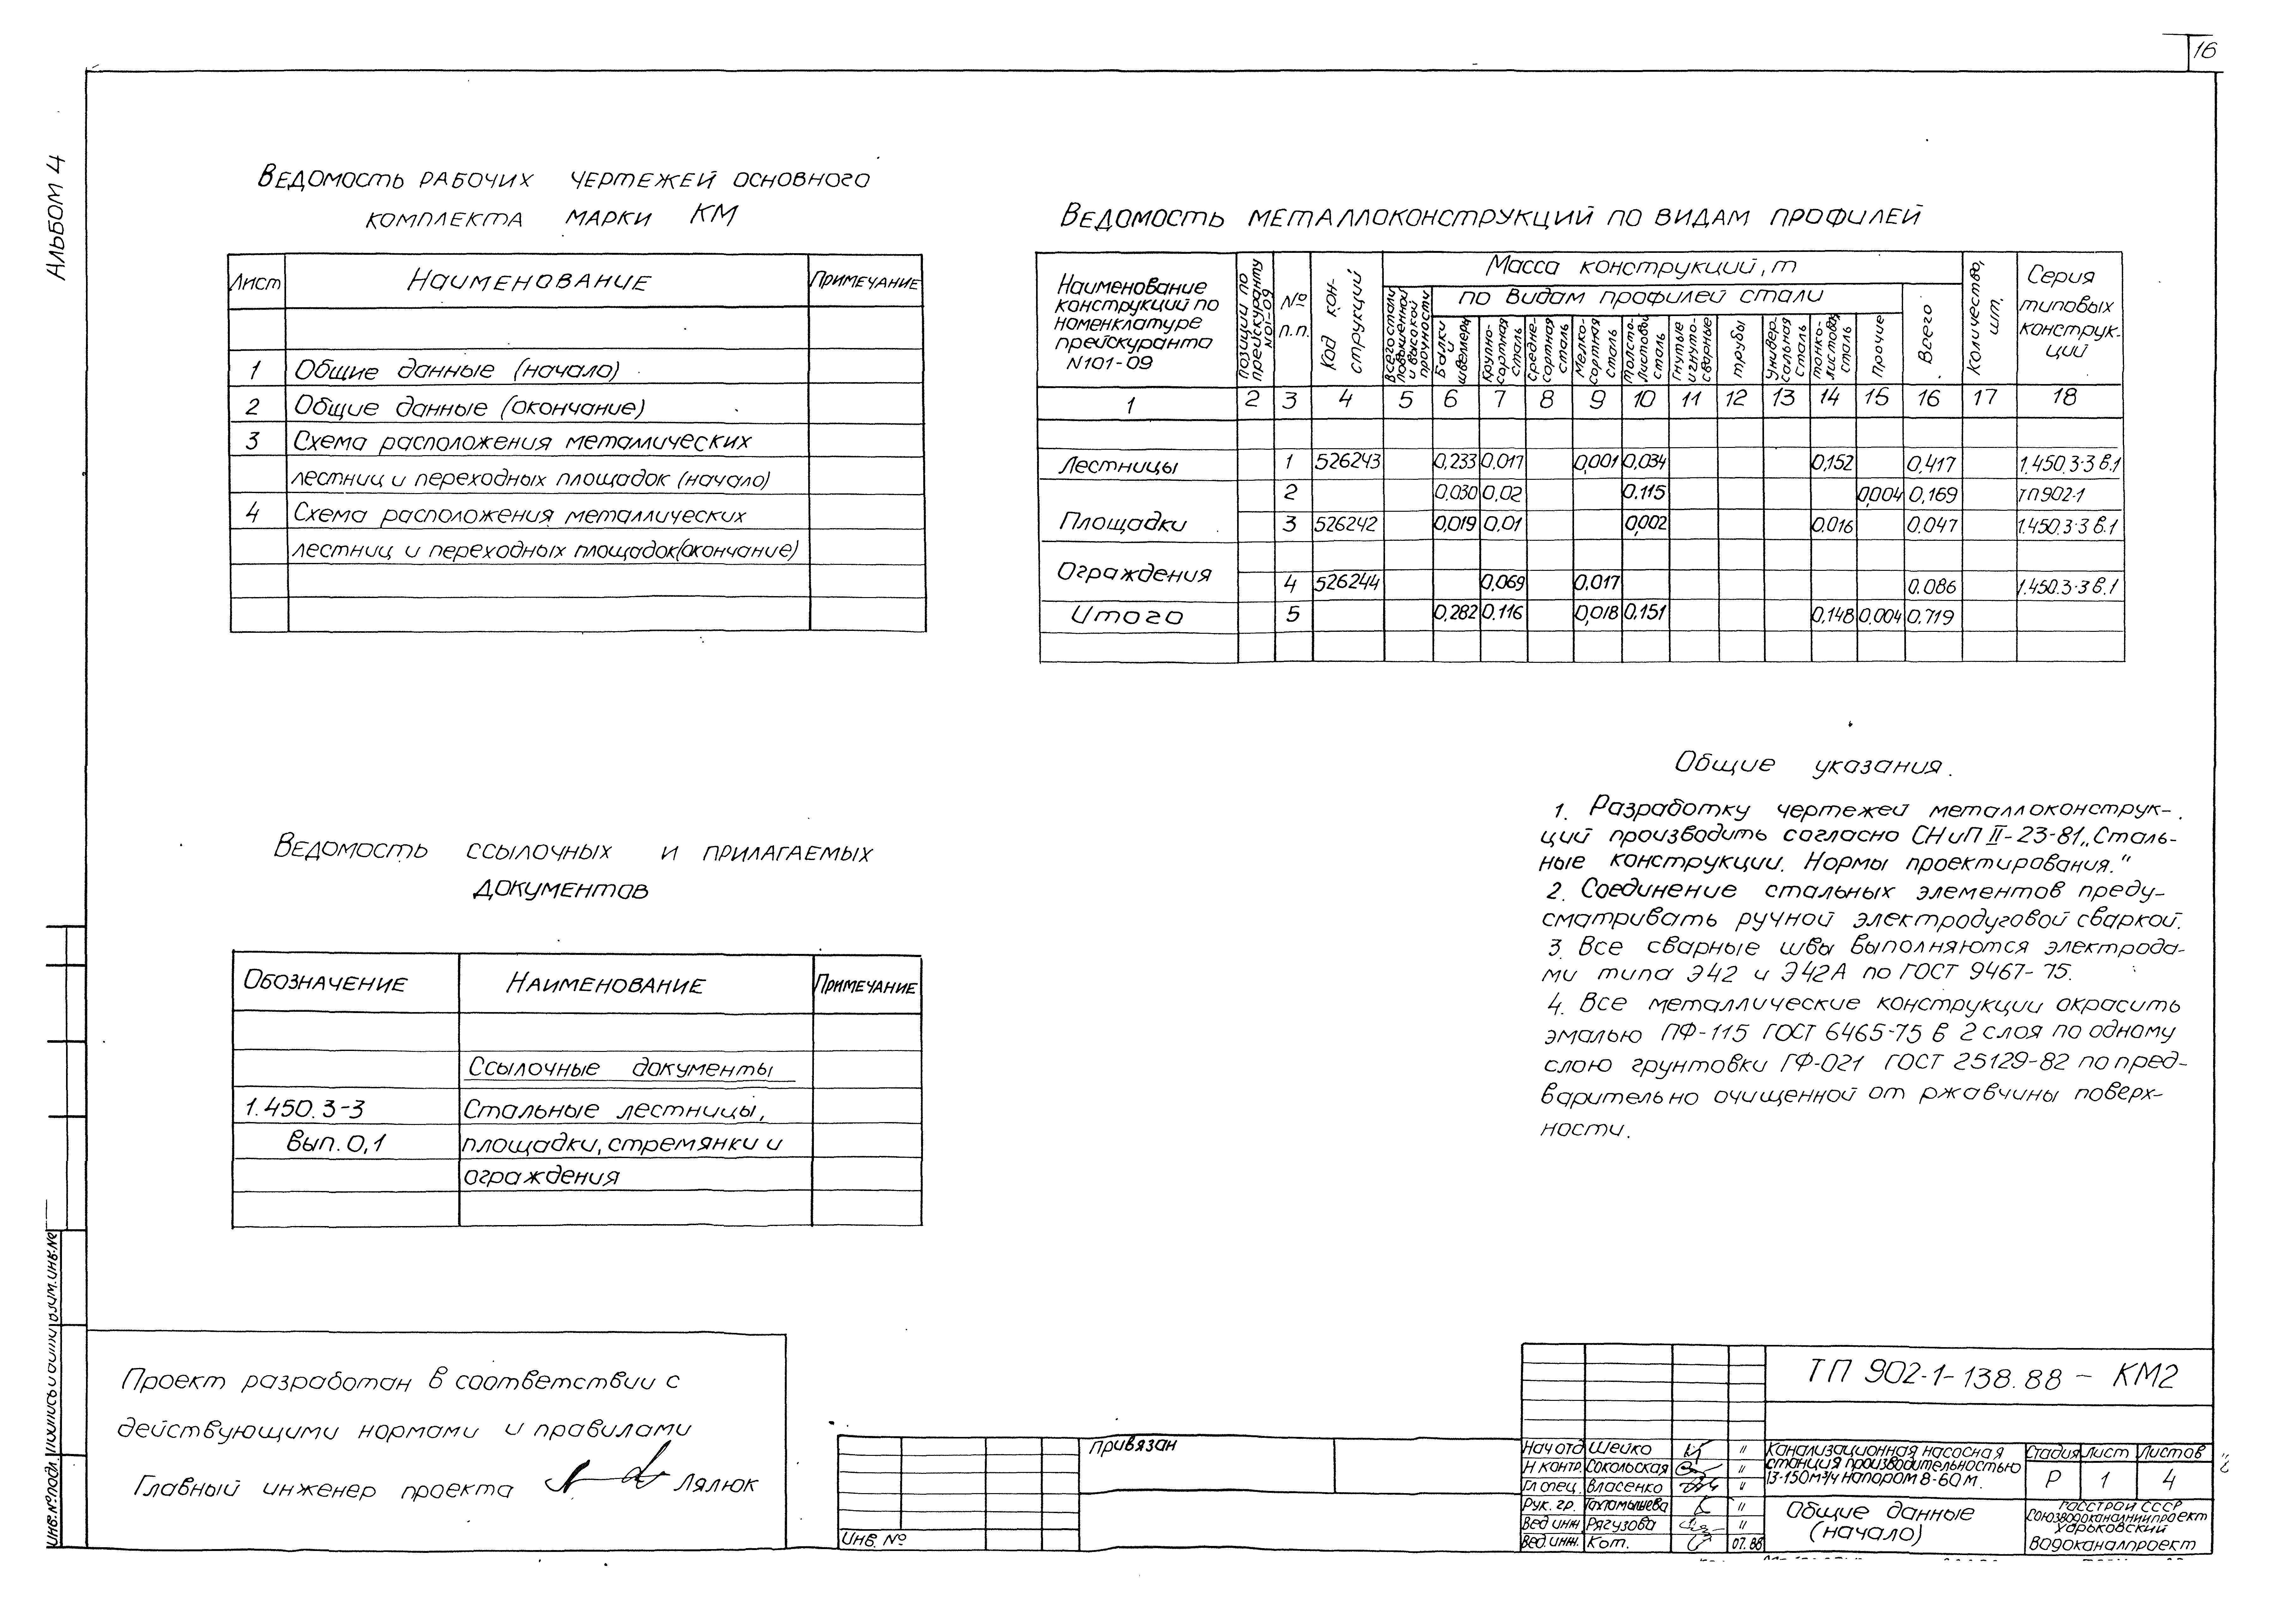 16
АЛЬБОМ 4
ВЕДОМОСТЬ РАБОЧИХ ЧЕРТЕЖЕЙ ОСНОВНОГО
КОМПЛЕКТА МАРКИ КМ
ЛИСТ НАИМЕНОВАНИЕ ПРИМЕЧАНИЕ
1 Общие данные (начало)
2 Общие данные (окончание)
3 Схема расположения металлических
лестниц и переходных площадок (начало)
4 Схема расположения металлических
лестниц и переходных площадок(окончание)
ВЕДОМОСТЬ МЕТАЛЛОКОНСТРУКЦИЙ ПО ВИДАМ ПРОФИЛЕЙ
Наименование
конструкций по
номенклатуре
прейскуранта
N101-09
Позиции по
прейскуранту
N 01-09
№
п.п.
Код кон-
струкций
Масса конструкций, т
Всего стали
повышенной
и высокой
прочности
по видам профилей стали
Балки
и
швеллеры
Крупно-
сортная
сталь
Средне-
сортная
сталь
Мелко-
сортная
сталь
Толсто-
листовая
сталь
Гнутые
и гнуто-
сварные
трубы
Универ-
сальная
сталь
тонко-
листовая
сталь
Прочие
Всего
Количество,
шт.
Серия
типовых
конструк-
ций
1 2 3 4 5 6 7 8 9 10 11 12 13 14 15 16 17 18
Лестницы 1 526243 0,233 0.017 0,001 0,034 0,152 0,417 1.450.3-3 в.1
2 0,030 0,02 0.115 0,004 0,169 ТП902-1
Площадки 3 526242 0,019 0.01 0,002 0.016 0.047 1.450.3-3 в.1
Ограждения
4 526244 0,069 0,017 0.086 1.450.3-3 в.1
Итого 5 0,282 0.116 0,018 0,151 0,148 0,004 0.719
Общие указания.
1. Разработку чертежей металлоконструк-
ций производить согласно СНиП II-23-81„Сталь-
ные конструкции. Нормы проектирования."
2. Соединение стальных элементов преду-
сматривать ручной электродуговой сваркой.
3. Все сварные швы выполняются электрода-
ми типа Э42 и Э42А по ГОСТ 9467-75.
4. Все металлические конструкции окрасить
эмалью ПФ-115 ГОСТ 6465-75 в 2 слоя по одному
слою грунтовки ГФ-021 ГОСТ 25129-82 по пред-
варительно очищенной от ржавчины поверх-
ности.
ВЕДОМОСТЬ ССЫЛОЧНЫХ И ПРИЛАГАЕМЫХ
ДОКУМЕНТОВ
ОБОЗНАЧЕНИЕ НАИМЕНОВАНИЕ ПРИМЕЧАНИЕ
Ссылочные документы
1.450.3-3 Стальные лестницы,
Вып. 0,1 площадки, стремянки и
ограждения
Проект разработан в соответствии с
действующими нормами и правилами
Главный инженер проекта Лялюк
Инв.№подл. Подпись и дата Взам.инв.№
привязан
Инв. №
ТП 902-1-138.88 - КМ2
Нач отд Шейко "
Н контр. Сокольская "
Гл спец. Власенко "
Рук. гр. "
Вед инж Рягузова "
Вед. инж. Кот. 07.88
Канализационная насосная
станция производительностью
13-150м³/ч напором 8-60м.
Стадия Лист Листов
Р 1 4
Общие данные
(начало)
Госстрой СССР
Союзводоканалниипроект
Харьковский
Водоканалпроект